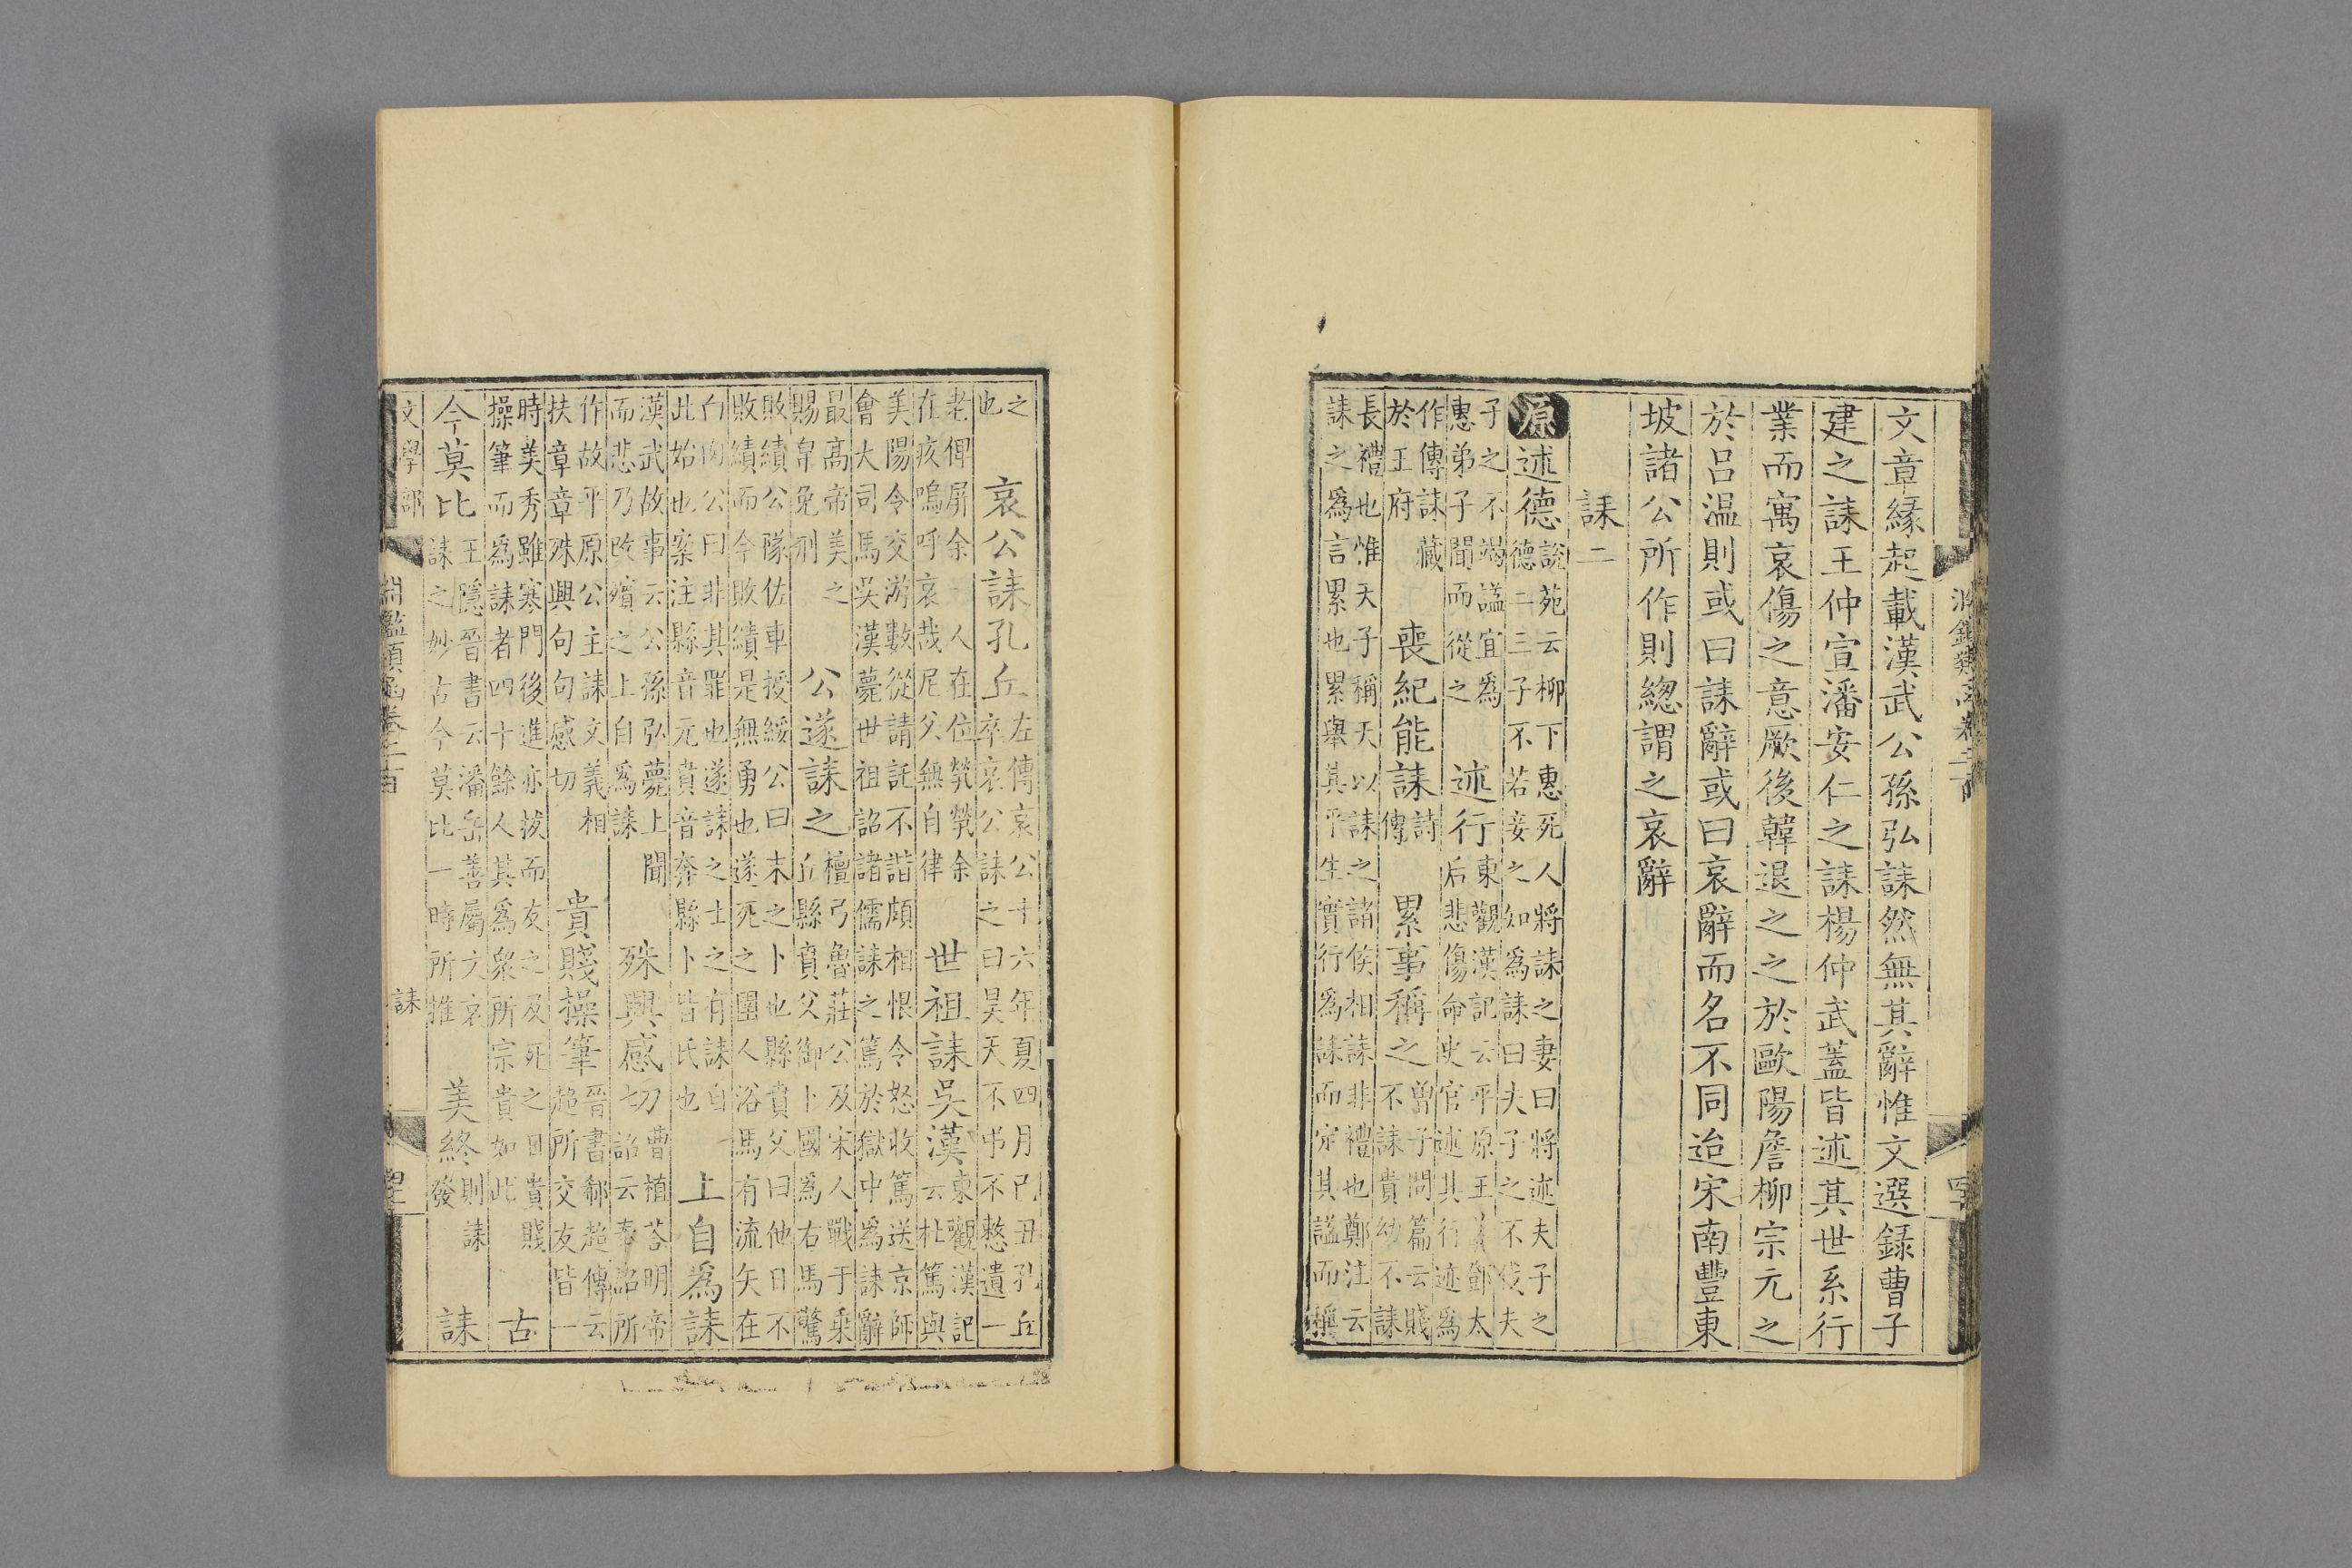 文章緣起載漢武公孫弘誄然無其辭惟文選錄曹子
建之誄王仲宣潘安仁之誄楊仲武蓋皆述其世系行
業而寓哀傷之意厥後韓退之之於歐陽詹柳宗元之
於呂温則或曰誄辭或曰哀辭而名不同迨宋南豐東
坡諸公所作則緫謂之哀辭
誄二
原述德說苑云柳下惠死人將誄之妻曰將述夫子之
德二三子不若妾之知爲誄曰夫子之不伐夫
子之不竭謚宜爲
惠弟子聞而從之
述行東觀漢記云平原王葬鄧太
后悲傷命史官述其行迹爲
作傳誄藏
於王府
喪紀能誄詩
傳
累事稱之曾子問篇云賤
不誄貴幼不誄
長禮也惟天子稱天以誄之諸侯相誄非禮也鄭注云
誄之爲言累也累舉其平生實行爲誄而定其謚而稱
之
也
哀公誄孔丘左傳哀公十六年夏四月己丑孔丘
卒哀公誄之曰昊天不弔不憗遺一
老俾屏余一人在位煢煢余
在疚嗚呼哀哉尼父無自律
世祖誄吳漢東觀漢記
云杜篤與
美陽令交游數從請託不諧頗相恨令怒收篤送京師
會大司馬吳漢薨世祖詔諸儒誄之篤於獄中爲誄辭
最高帝美之
賜帛免刑
公遂誄之檀弓魯莊公及宋人戰于乘
丘縣賁父御卜國爲右馬驚
敗績公隊佐車授綏公曰末之卜也縣賁父曰他日不
敗績而今敗績是無勇也遂死之圉人浴馬有流矢在
白肉公曰非其罪也遂誄之士之有誄自
此始也案注縣音元賁音奔縣卜皆氏也
上自爲誄
漢武故事云公孫弘薨上聞
而悲乃改殯之上自爲誄
殊興感切曹植荅明帝
詔云奉詔所
作故平原公主誄文義相
扶章章殊興句句感切
貴賤操筆晉書郗超傳云
超所交友皆一
時美秀雖寒門後進亦拔而友之及死之日貴賤
操筆而爲誄者四十餘人其爲衆所宗貴如此
古
今莫比王隱晉書云潘岳善屬文哀
誄之妙古今莫比一時所推
美終則誄
發
誄
文學部
誄